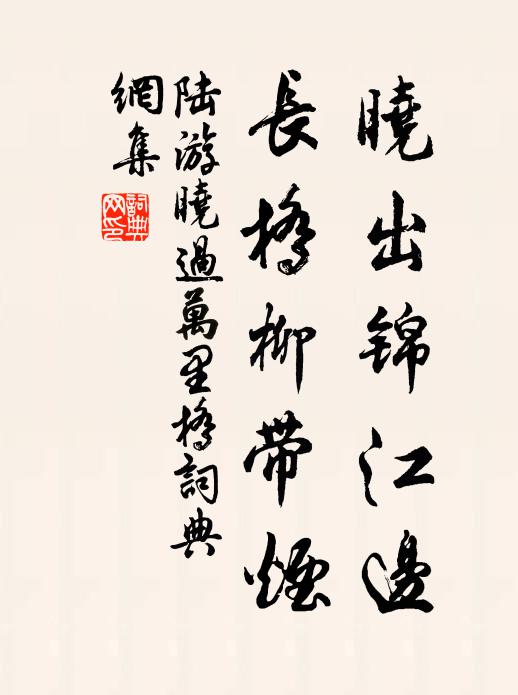 曉出锦江邊
長橋柳带煙
陆游曉過萬里橋詞典
網集
詞典網印